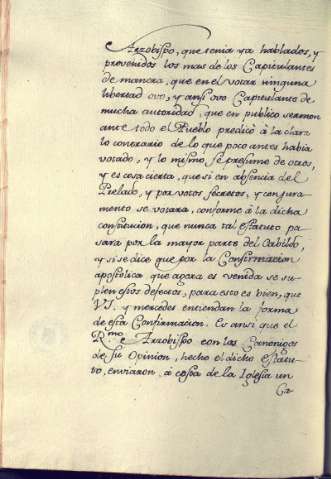 Arzobispo, que tenia ya hablados, y
prevenidos los mas de los Capitulantes
de manera, que en el votar ninguna
libertad ovo, y ansi ovo Capitulante de
mucha autoridad, que en publico sermon
ante todo el Pueblo predicó á la clara
lo contrario de lo que poco antes habia
votado, y lo mismo se presume de otros,
y es cosa cierta, que si en absencia del
Prelado, y por votos secretos, y con jura
mento se votara, conforme á la dicha
constitucion, que nunca tal estatuto pa
sara por la mayor parte del Cabildo,
y si se dice que por la Confirmacion
apostolica que agora es venida se su
plen estos defectos, para esto es bien, que
VS. y mercedes entiendan la forma
de esta Confirmacion. Es ansi que el
R.mo Arzobispo con los Canonigos
de Su Opinion, hecho el dicho Estatu
to, enviaron, á costa de la Iglesia un
Ca